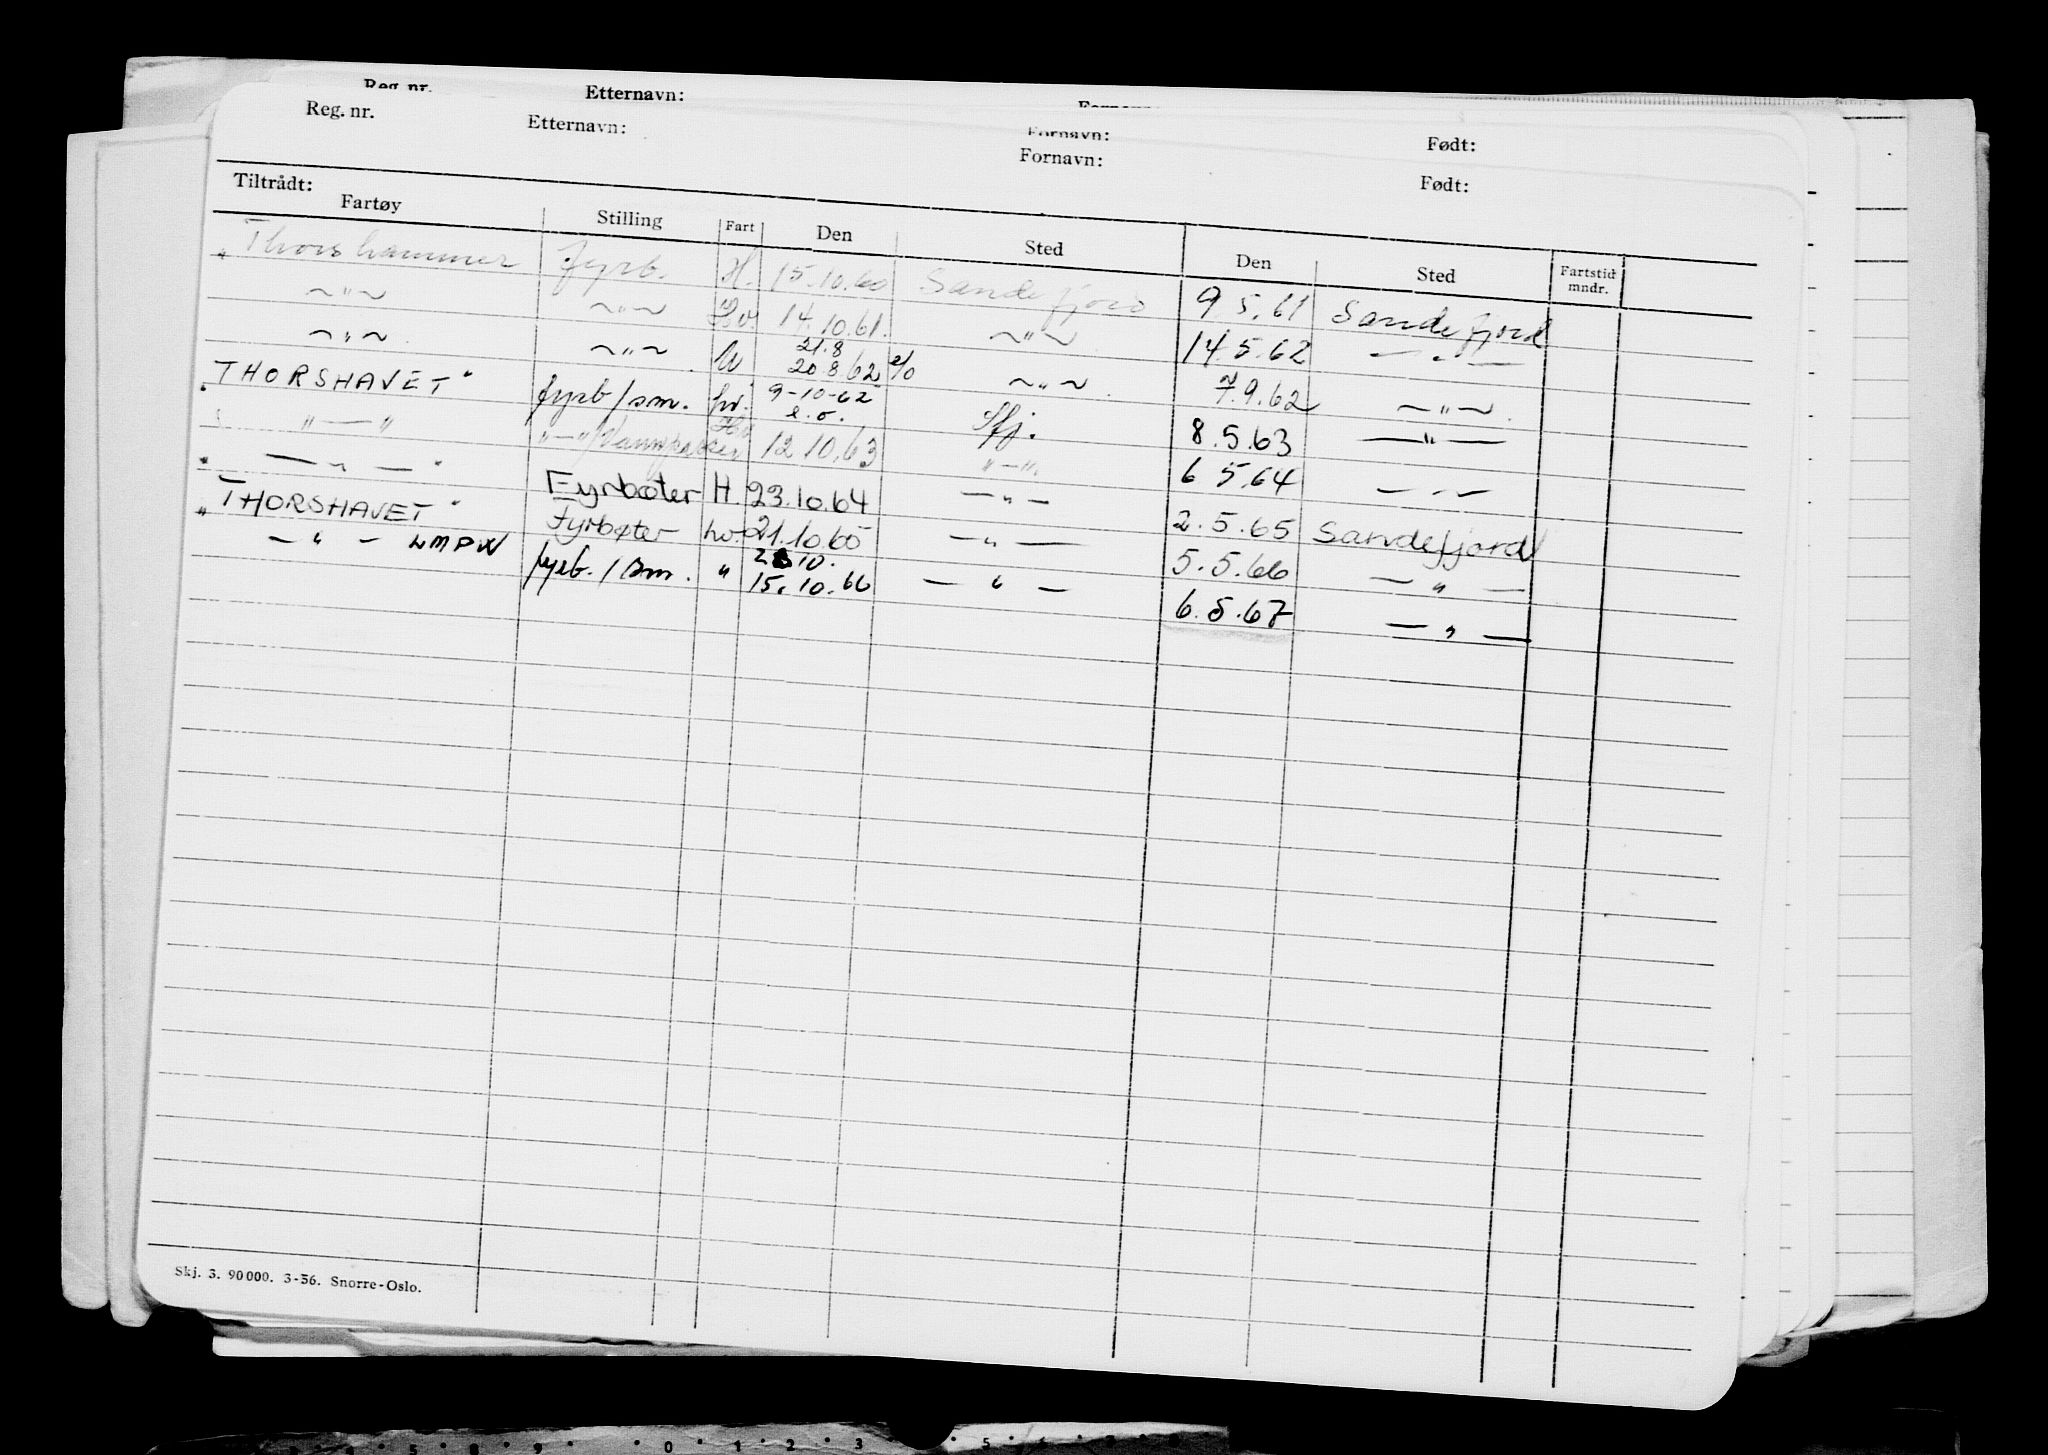 Reg. nr. Etternavn:
Reg. nr. Etternavn: Fornavn: Født:
Fornavn: Født:
Tiltrådt:
Fartøy Stilling Fart Den Sted Den Sted Fartstid mndr.
"Thorshammer fyrb. H. 15.10.60 Sandefjord 9 5.61 Sandefjord
~"~ ~"~ Hv. 14.10.61. ~"~ 14.5.62 — " —
21.8
~"~ ~"~ U 20 8 62 e/o ~"~ 7.9.62 ~"~
"THORSHAVET" fyrb/sm. hv. 9-10-62 e.o. Sfj. 8.5.63 — " —
" — " " — "/ Hv 12 10.63 " — " 6 5.64 — " —
" — " — " Fyrbøter H. 23.10.64 — " — 2.5.65 Sandefjord
"THORSHAVET" Fyrbøter hv. 21.10.65 — " — 5.5.66 — " —
28 10.
— " — LMPW fyrb./sm. " 15.10.66 — " — 6.5.67 — " —
Skj. 3. 90000. 3-56. Snorre-Oslo.